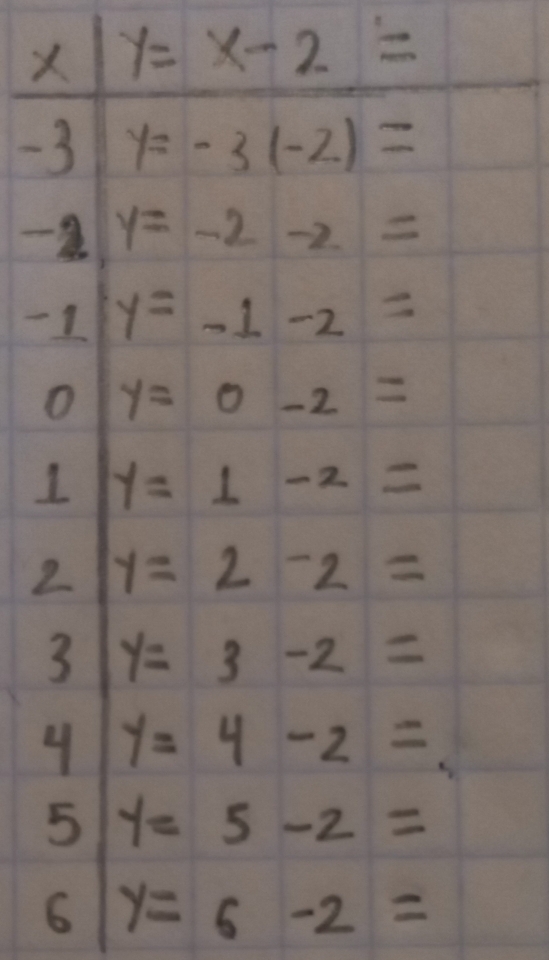 x y= x-2 =
-3 y= -3 (-2) =
-2 y= -2 -2 =
-1 y= -1 -2 =
0 y= 0 -2 =
1 y= 1 -2 =
2 y= 2 -2 =
3 y= 3 -2 =
4 y= 4 -2 =
5 y= 5 -2 =
6 y= 6 -2 =